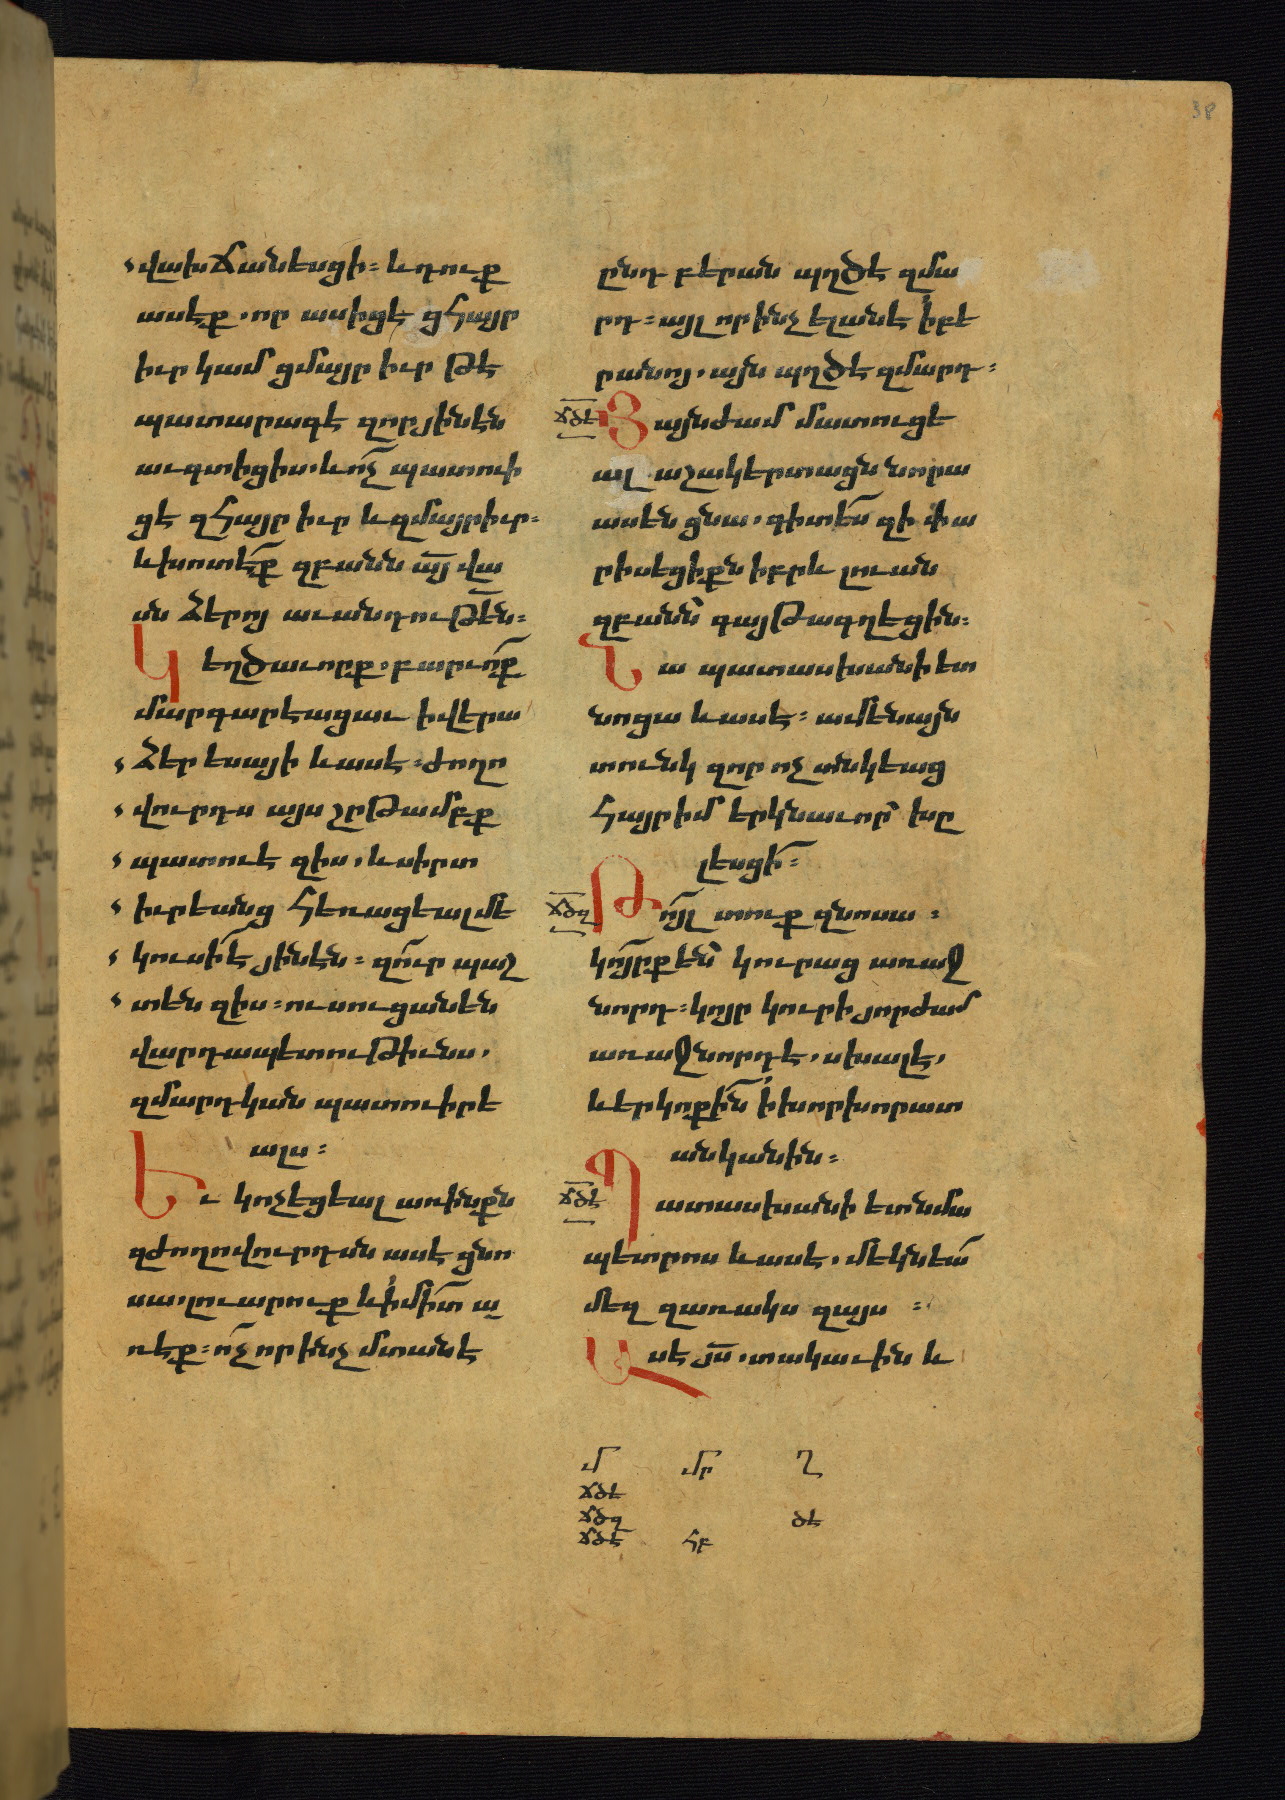 38
վախճանեսցի։ և դուք
ասէք, որ ասիցէ ցհայր
իւր կամ ցմայր իւր թէ
պատարագէ զոր յինէն
աւգտիցիս, և ո՛չ պատուի
ցէ զհայր իւր և զմայր իւր։
և խոտէ՛ք զբանն այ վա
սն ձերոյ աւանդութեն։
Կեղծաւորք, բարւո՛ք
մարգարէացաւ ի վերա
ձեր եսայի և ասէ։ ժողո
վուրդս այս շրթամբք
պատուէ զիս, և սիրտ
իւրեանց հեռացեալ մե
կուսի՛ է յինէն։ զո՛ւր պաշ
տեն զիս։ ուսուցանեն
վարդապետութիւնս,
զմարդկան պատուիրե
ալս։
Եւ կոչեցեալ առինքն
զժողովուրդսն ասէ ցնո
սա, լուարուք և ի մի՛տ ա
ռէք։ ո՛չ որ ինչ մտանէ
ընդ բերան պղծէ զմա
րդ։ այլ որ ինչ ելանէ ի բե
րանոյ, այն պղծէ զմարդ։
ճծե
Յայնժամ մատուցե
ալ աշակերտացն նորա
ասեն ցնա, գիտե՛ս զի փա
րիսեցիքն իբրև լուան
զբանն գայթագղեցին։
Նա պատասխանի ետ
նոցա և ասէ։ ամենայն
տունկ զոր ոչ տնկեաց
հայր իմ երկնաւոր՝ խը
լեսցի՛։
ճծզ
Թո՛յլ տուք զնոսա։
կո՛յրք են՝ կուրաց առաջ
նորդ։ կոյր կուրի յորժամ
առաջնորդէ, սխալէ,
և երկոքի՛ն ի խորխորատ
անկանին։
ճծէ
Պատասխանի ետ նմա
պետրոս և ասէ, մեկնեա՛
մեզ զառակս զայս։
Ասէ յս, տակաւին և
մ մր ղ
ճծե
ճծզ ծէ
ճծէ հբ